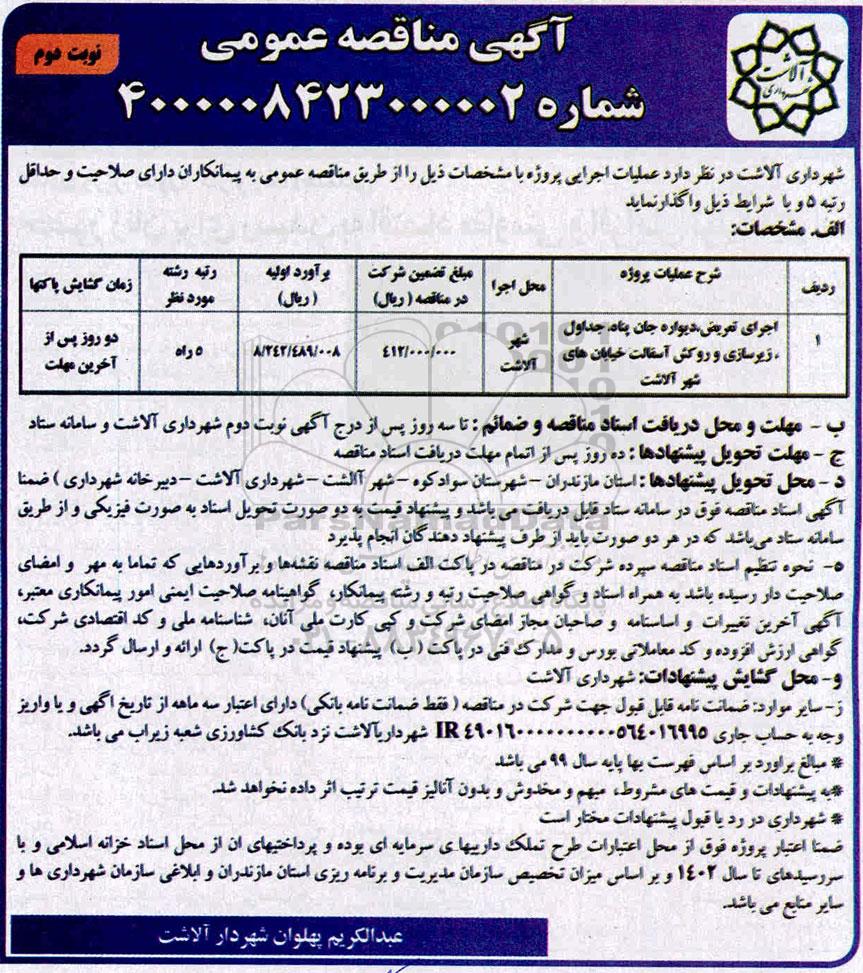 آگهی مناقصه عمومی
نوبت دوم
شماره ۴۰۰۰۰۰۸۴۲۳۰۰۰۰۰۲
آلاشت
شهرداری
شهرداری آلاشت در نظر دارد عملیات اجرایی پروژه با مشخصات ذیل را از طریق مناقصه عمومی به پیمانکاران دارای صلاحیت و حداقل
رتبه ۵ و با شرایط ذیل واگذارنماید
الف. مشخصات:
ردیف شرح عملیات پروژه محل اجرا مبلغ تضمین شرکت در مناقصه (ریال) برآورد اولیه (ریال) رتبه رشته مورد نظر زمان گشایش پاکتها
۱ اجرای تعریض،دیواره جان پناه، جداول ، زیرسازی و روکش آسفالت خیابان های شهر آلاشت شهر آلاشت ۴۱۲/۰۰۰/۰۰۰ ۸/۲۴۲/۴۸۹/۰۰۸ ۵ راه دو روز پس از آخرین مهلت
ب - مهلت و محل دریافت اسناد مناقصه و ضمائم : تا سه روز پس از درج آگهی نوبت دوم شهرداری آلاشت و سامانه ستاد
ج - مهلت تحویل پیشنهادها : ده روز پس از اتمام مهلت دریافت اسناد مناقصه
د - محل تحویل پیشنهادها : استان مازندران - شهرستان سوادکوه - شهر آلاشت - شهرداری آلاشت - دبیرخانه شهرداری ) ضمنا
آگهی اسناد مناقصه فوق در سامانه ستاد قابل دریافت می باشد و پیشنهاد قیمت به دو صورت تحویل اسناد به صورت فیزیکی و از طریق
سامانه ستاد می‌باشد که در هر دو صورت باید از طرف پیشنهاد دهندگان انجام پذیرد
ه- نحوه تنظیم اسناد مناقصه سپرده شرکت در مناقصه در پاکت الف اسناد مناقصه نقشه‌ها و برآوردهایی که تماما به مهر و امضای
صلاحیت دار رسیده باشد به همراه اسناد و گواهی صلاحیت رتبه و رشته پیمانکار، گواهینامه صلاحیت ایمنی امور پیمانکاری معتبر،
آگهی آخرین تغییرات و اساسنامه و صاحبان مجاز امضای شرکت و کپی کارت ملی آنان، شناسنامه ملی و کد اقتصادی شرکت،
گواهی ارزش افزوده و کد معاملاتی بورس و مدارک فنی در پاکت (ب) پیشنهاد قیمت در پاکت( ج) ارائه و ارسال گردد.
و- محل گشایش پیشنهادات: شهرداری آلاشت
ز- سایر موارد: ضمانت نامه قابل قبول جهت شرکت در مناقصه ( فقط ضمانت نامه بانکی) دارای اعتبار سه ماهه از تاریخ اگهی و یا واریز
وجه به حساب جاری IR ۴۹۰۱۶۰۰۰۰۰۰۰۰۰۰۵۶۴۰۱۶۹۹۵ شهرداریآلاشت نزد بانک کشاورزی شعبه زیراب می باشد.
* مبالغ براورد بر اساس فهرست بها پایه سال ۹۹ می باشد
*به پیشنهادات و قیمت های مشروط، مبهم و مخدوش و بدون آنالیز قیمت ترتیب اثر داده نخواهد شد.
* شهرداری در رد یا قبول پیشنهادات مختار است
ضمنا اعتبار پروژه فوق از محل اعتبارات طرح تملک داریبها ی سرمایه ای بوده و پرداختیهای ان از محل اسناد خزانه اسلامی و با
سررسیدهای تا سال ۱۴۰۲ و بر اساس میزان تخصیص سازمان مدیریت و برنامه ریزی استان مازندران و ابلاغی سازمان شهرداری ها و
سایر منابع می باشد.
عبدالکریم پهلوان شهردار آلاشت
ParsNamadData